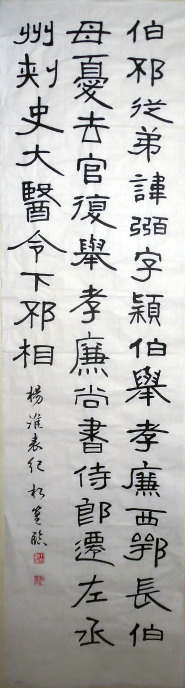 伯邳從弟諱弼字潁伯舉孝廉西鄂長伯
母憂去官復舉孝廉尚書侍郎遷左丞
州刾史大醫令下邳相
楊淮表紀 臨